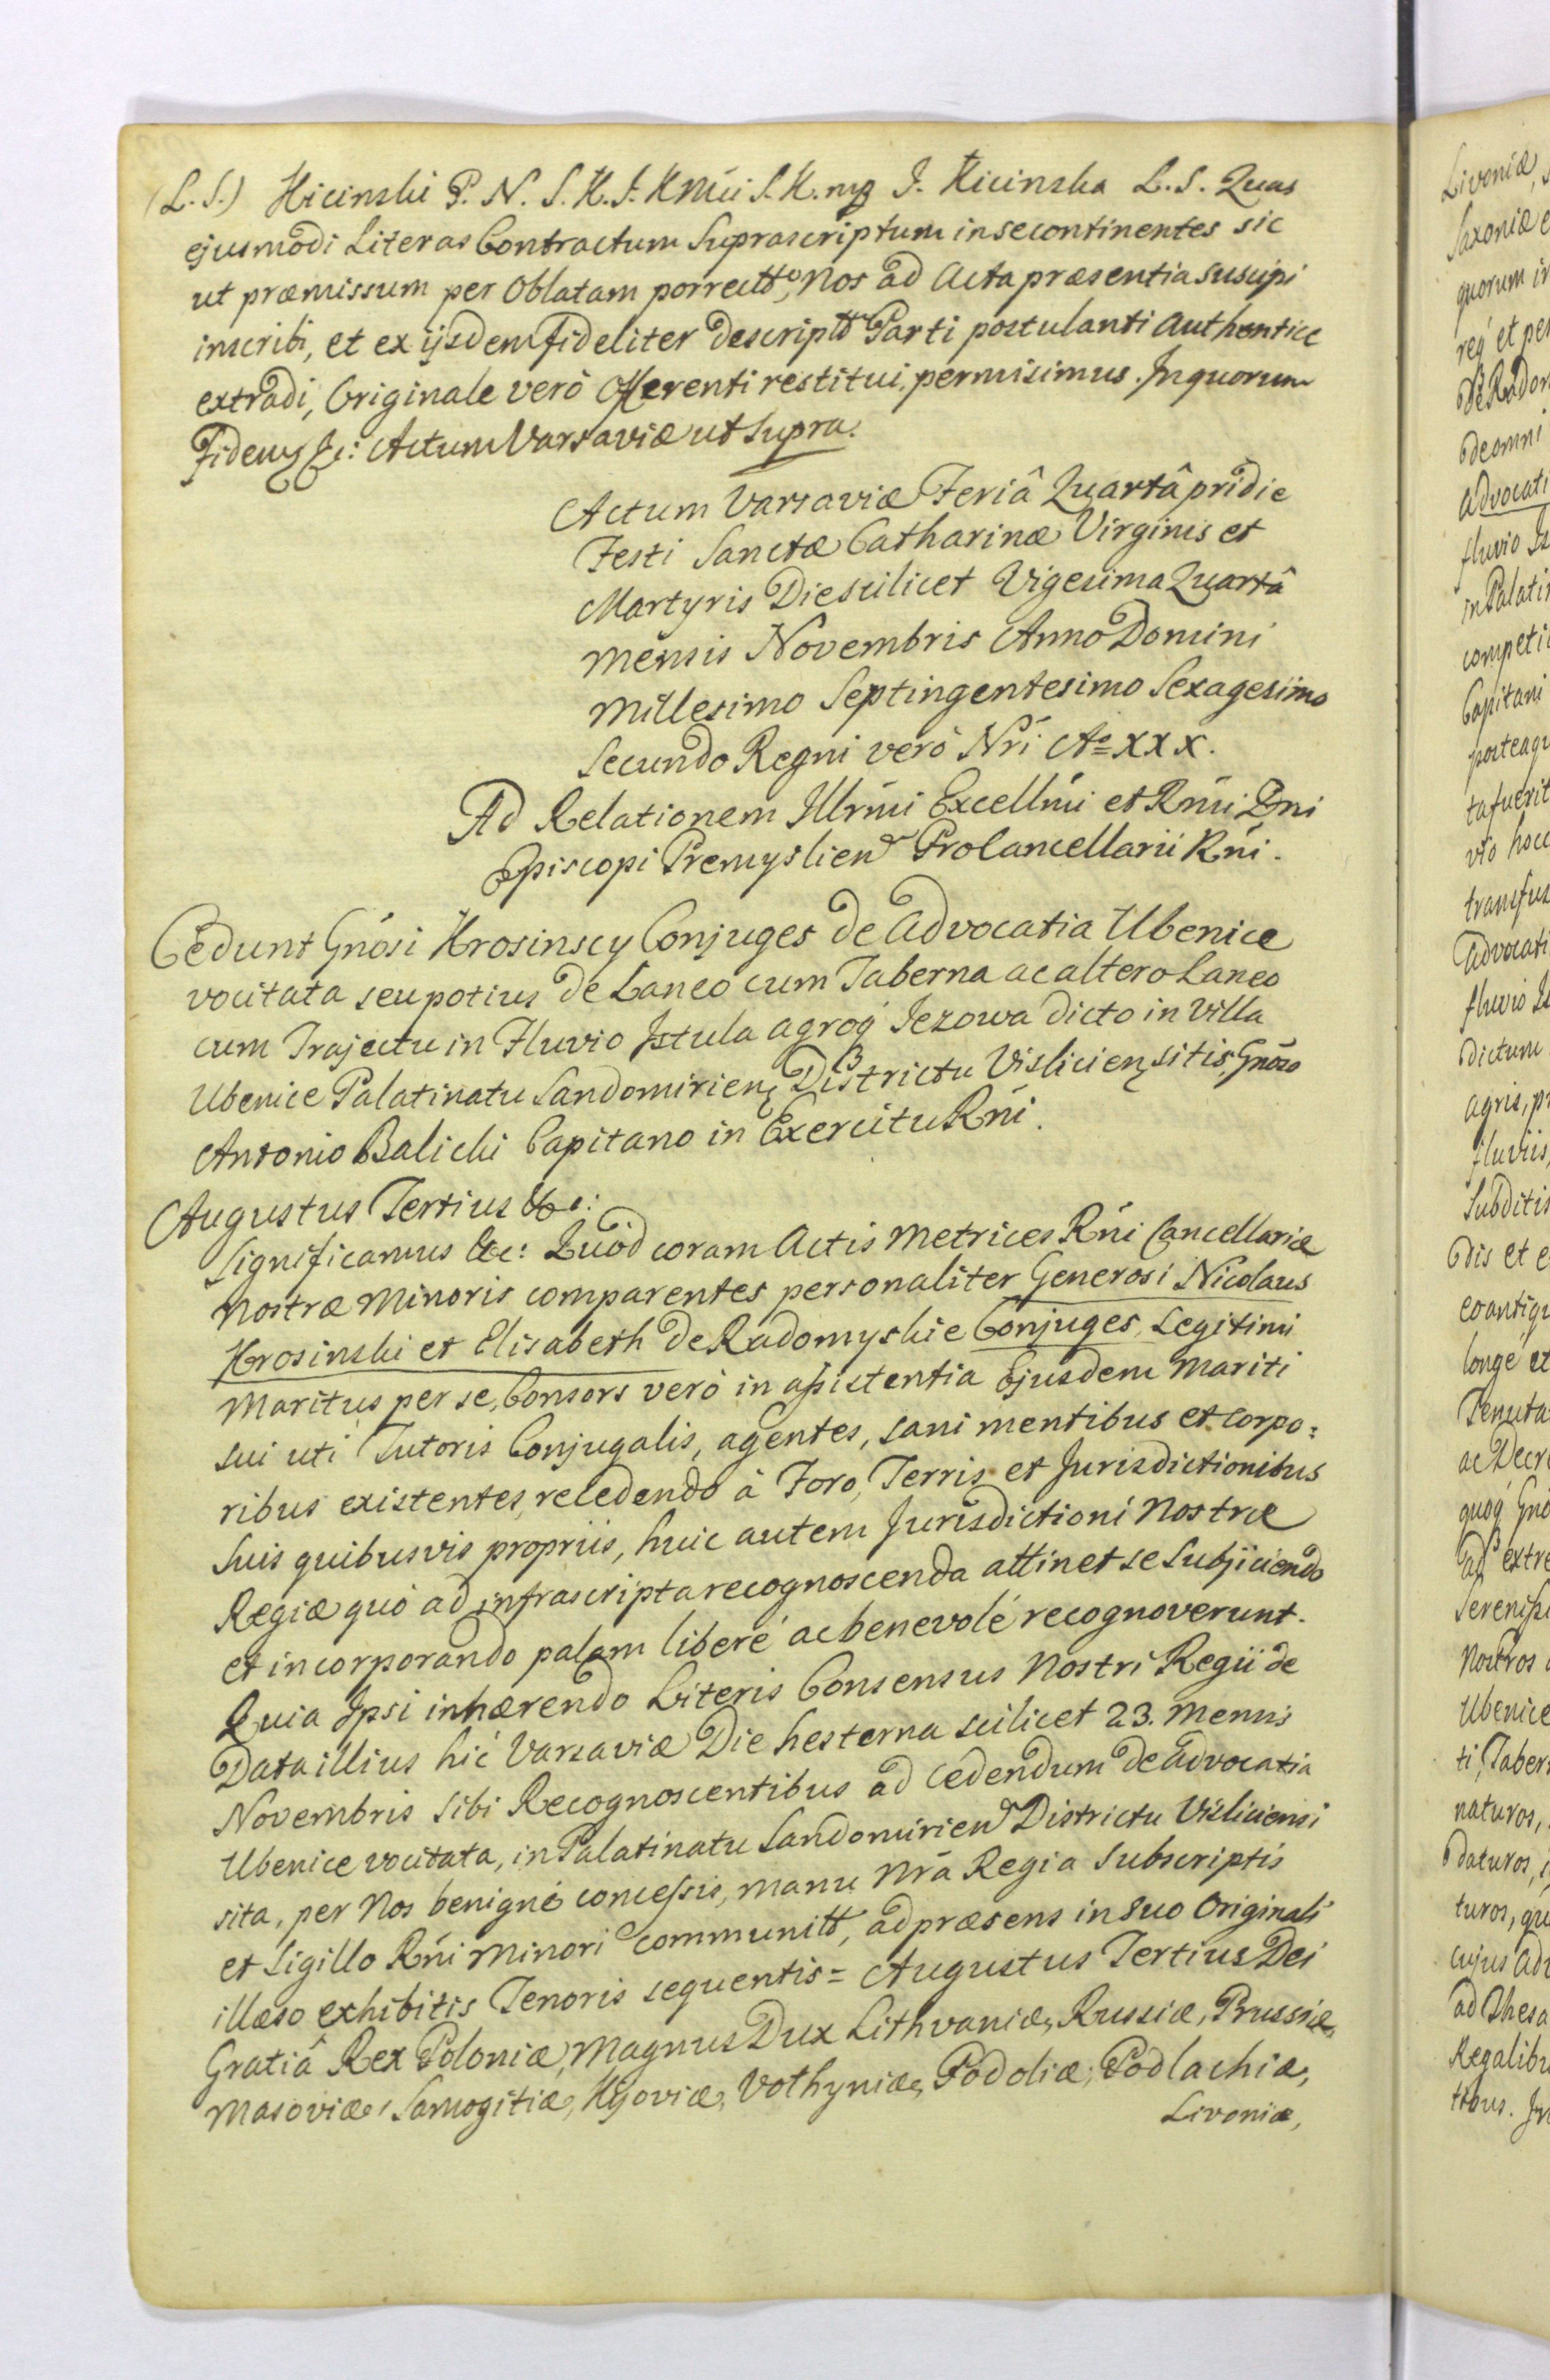 (L.S.) Kicinski P. N. S. K. J. K Mći S. K. mp J. Kicinska L.S. Quas
ejusmodi Literas Contractum Suprascriptum in se continentes sic
ut præmissum per Oblatam porrectas, Nos ad Acta præsentia suscipi
inscribi, et ex ijsdem fideliter descriptas Parti postulanti authentice
extradi, Originale verò Offerenti restitui, permisimus. In quorum
Fidem &c: Actum Varsaviæ ut supra.
Actum Varsaviæ Feriâ Quartâ pridie
Festi Sanctæ Catharinæ Virginis et
Martyris Die scilicet Vigesima Quartâ
mensis Novembris Anno Domini
Millesimo Septingentesimo Sexagesimo
Secundo Regni verò Nrí Ao XXX.
Ad Relationem Illrmi Excellmi et Rmi Dni
Episcopi Premyslien Procancellarii Rńi.
Cedunt Gnosi Krosinscy Conjuges de Advocatia Ubenice
vocitata seu potius de Laneo cum Taberna ac altero Laneo
cum Trajectu in Fluvio Istula agroq Jezowa dicto in Villa
Ubenice Palatinatu Sandomirien Districtu Vislicien sitis, Gnoso
Antonio Balicki Capitano in Exercitu Rńi.
Augustus Tertius &c:
Significamus &c: Quòd coram Actis Metrices Rńi Cancellariæ
Nostræ Minoris comparentes personaliter Generosi Nicolaus
Krosinski et Elisabeth de Radomyskie Conjuges, Legitimi
Maritus per se, Consors verò in assistentia Ejusdem Mariti
sui uti Tutoris Conjugalis, agentes, sani mentibus et corpo:
ribus existentes, recedendo à Foro, Terris et Jurisdictionibus
Suis quibusvis propriis, huic autem Jurisdictioni Nostræ
Regiæ quò ad infrascripta recognoscenda attinet se Subjiciendo
et incorporando palam liberé ac benevolé recognoverunt.
Quia Ipsi inhærendo Literis Consensus Nostri Regii de
Data illius hic Varsaviæ Die hesterna scilicet 23. Mensis
Novembris sibi Recognoscentibus ad cedendum de advocatia
Ubenice vocitata, in Palatinatu Sandomirien Districtu Visliciensi
sita, per Nos benignè concessis, manu Nrá Regia Subscriptis
et Sigillo Rńi Minori communitt, ad præsens in suo Originali
illæso exhibitis Tenoris sequentis = Augustus Tertius Dei
Gratiâ Rex Poloniæ, Magnus Dux Lithvaniæ, Russiæ, Prussiæ,
Masoviæ, Samogitiæ, Kyoviæ, Volhyniæ, Podoliæ, Podlachiæ,
Livoniæ,